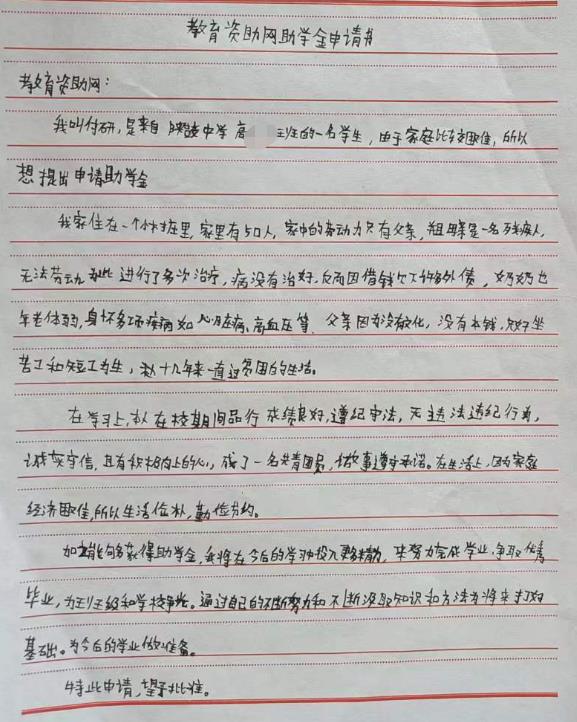 教育资助网助学金申请书
教育资助网：
我叫付研，是来自 中学 高 班的一名学生，由于家庭比较困难，所以
想提出申请助学金
我家住在一个小村庄里，家里有5口人，家中的劳动力只有父亲，母亲是一名残疾人，
无法劳动 进行了多次治疗，病没有治好，反而因借钱欠下许多外债，奶奶也
年老体弱，身怀多项疾病如 心脏病、高血压等，父亲因为没有文化，没有本钱，只好坐
苦工和短工为生，我十几年来一直过贫困的生活。
在学习上，本人在校期间品行 成绩良好，遵纪守法，无违法违纪行为，
诚实守信，具有积极向上的心，成了一名共青团员，做事遵守承诺。在生活上，因为家庭
经济困难，所以生活俭朴，勤俭节约。
如 能够获得助学金，我将在今后的学习中投入更多精力，来努力完成学业，争取优秀
毕业，为班级和学校争光。通过自己的不断努力和不断汲取知识和方法为将来打好
基础。为今后的学业做准备。
特此申请，望予批准。